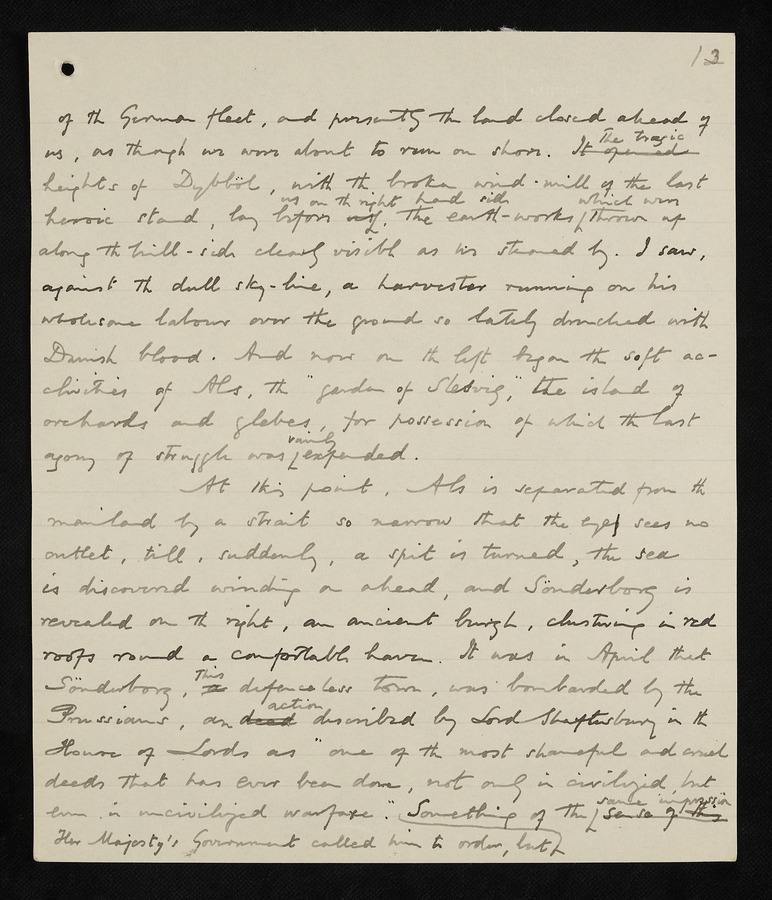 13
of the German fleet, and presently the land closed ahead of
us, as though we were about to run on shore. It opened The tragic
heights of Dybböl, with the broken wind-mill of the last
heroic stand, lay before us on the right hand side. The earth-works which were thrown up
along the hill-side clearly visible as we steamed by. I saw,
against the dull sky-line, a harvester running on his
wholesome labour over the ground so lately drenched with
Danish blood. And now on the left began the soft ac-
clivities of Als, the "garden of Slesvig," the island of
orchards and glebes, for possession of which the last
agony of struggle was vainly expended.
At this point, Als is separated from the
mainland by a strait so narrow that the eye sees no
outlet, till, suddenly, a spit is turned, the sea
is discovered winding on ahead, and Sönderborg is
revealed on the right, an ancient burgh, clustering in red
roofs round a comfortable haven. It was in April that
Sönderborg, a This defenceless town, was bombarded by the
Prussians, an deed action described by Lord Shaftesbury in the
House of Lords as "one of the most shameful and cruel
deeds that has ever been done, not only in civilized, but
even in uncivilized warfare." Something of the same impression sense of this
Her Majesty's Government called him to order, but